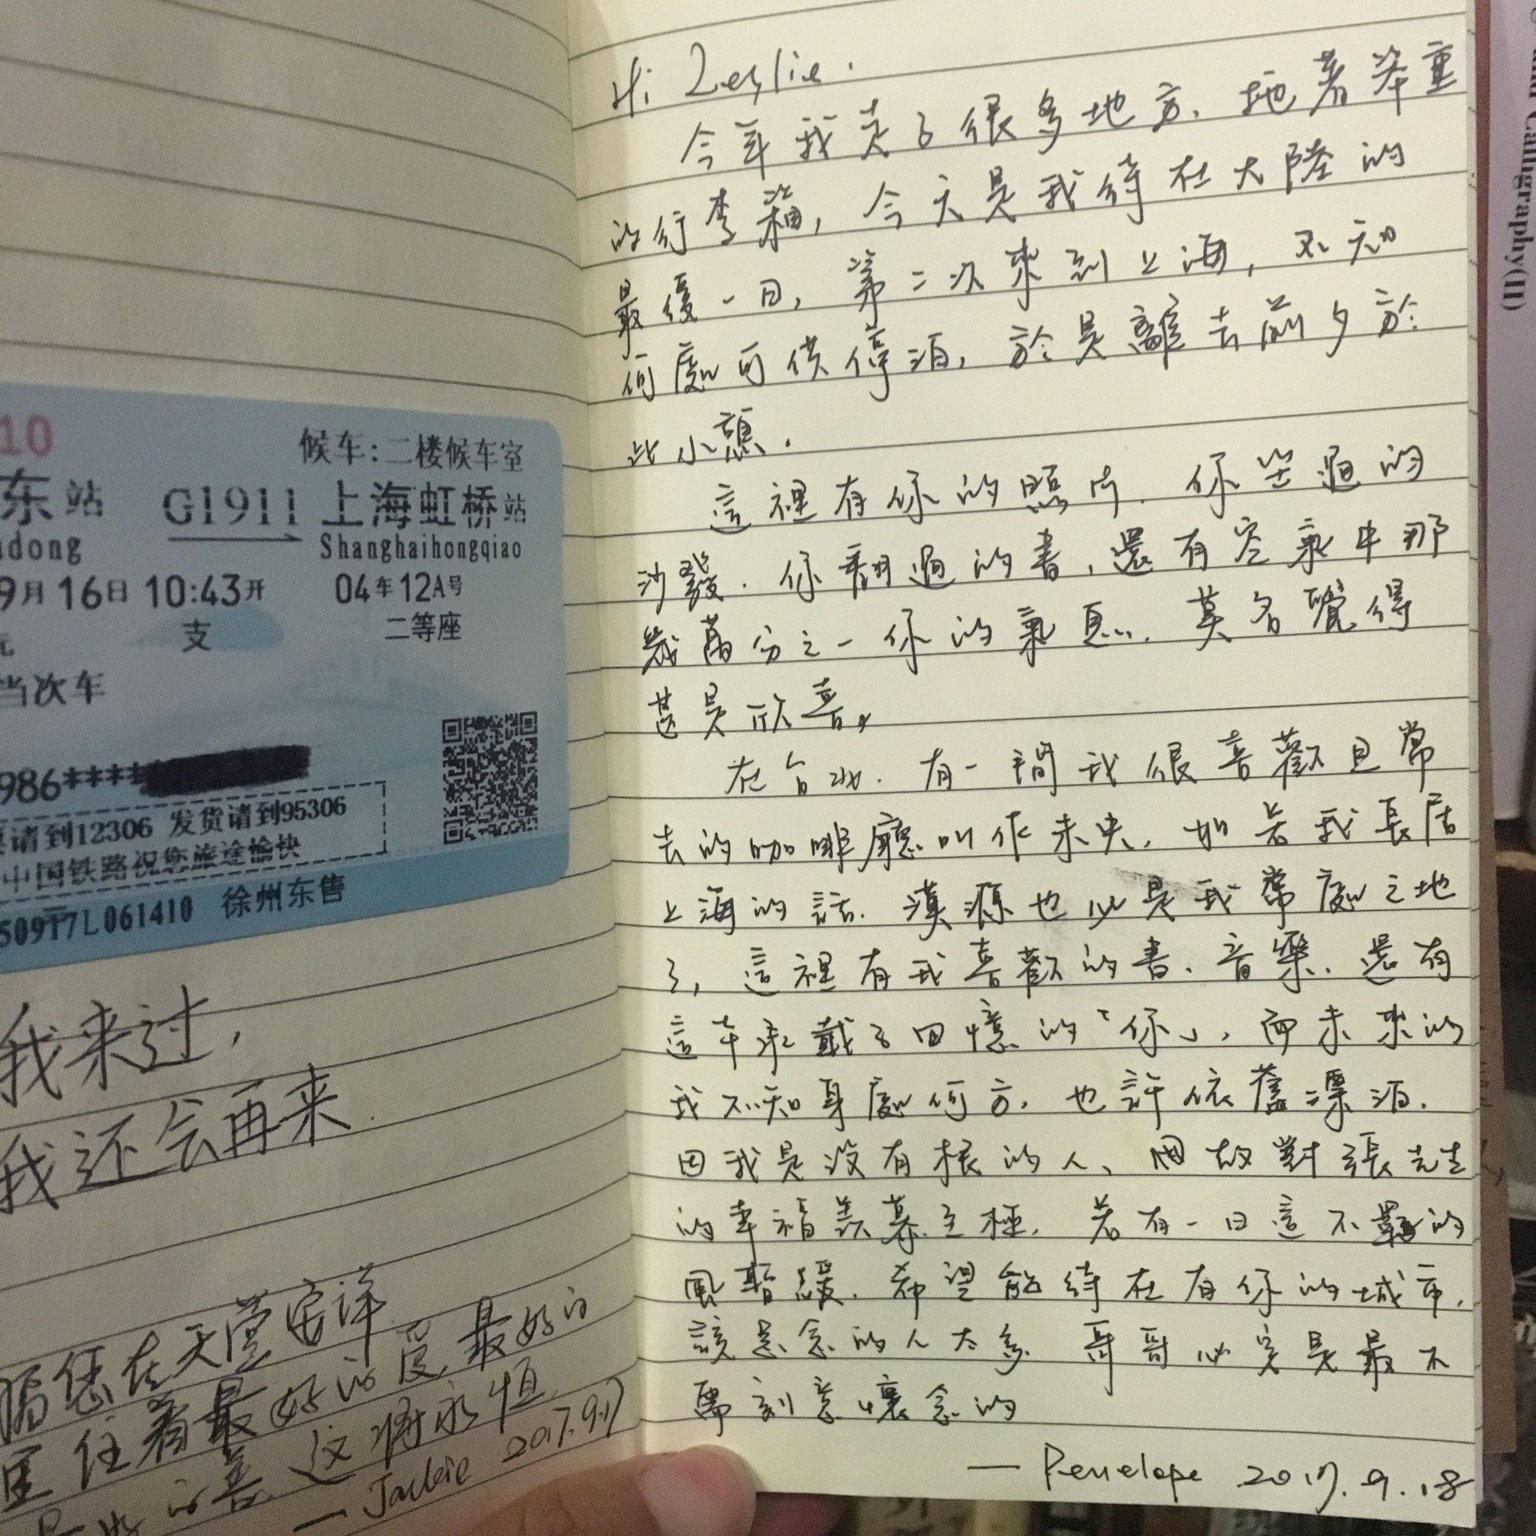 10
候车:二楼候车室
东站
G1911
上海虹桥站
dong
Shanghaihongqiao
9月16日 10:43开
04车12A号
元
支
二等座
当次车
986****
请到12306 发货请到95306
中国铁路祝您旅途愉快
50917L061410 徐州东售
我来过，
我还会再来.
您在天堂安详
住着最好的
最好的
这将永恒
—Jackie 2017.9.17
Hi Leslie.
今年我走了很多地方、拖著笨重
的行李箱，今天是我待在大陸的
最後一日，第二次來到上海，不知
何處可供停泊，於是離去前夕於
此小憩.
這裡有你的照片. 你坐過的
沙發. 你翻過的書，還有空氣中那
幾萬分之一你的氣息. 莫名覺得
甚是欣喜。
在台北. 有一間我很喜歡且常
去的咖啡廳叫作未央，如若我長居
上海的話. 漢源也必是我常處之地
了，這裡有我喜歡的書、音樂. 還有
這年來載了回憶的「你」，而未來的
我不知身處何方，也許依舊漂泊.
因我是沒有根的人、因故對張先生
的幸福羨慕至極. 若有一日這不羈的
風暫緩. 希望能待在有你的城市.
該惦念的人太多 哥哥必定是最不
需刻意懷念的
— Penelope 2017.9.18
and Calligraphy(II)